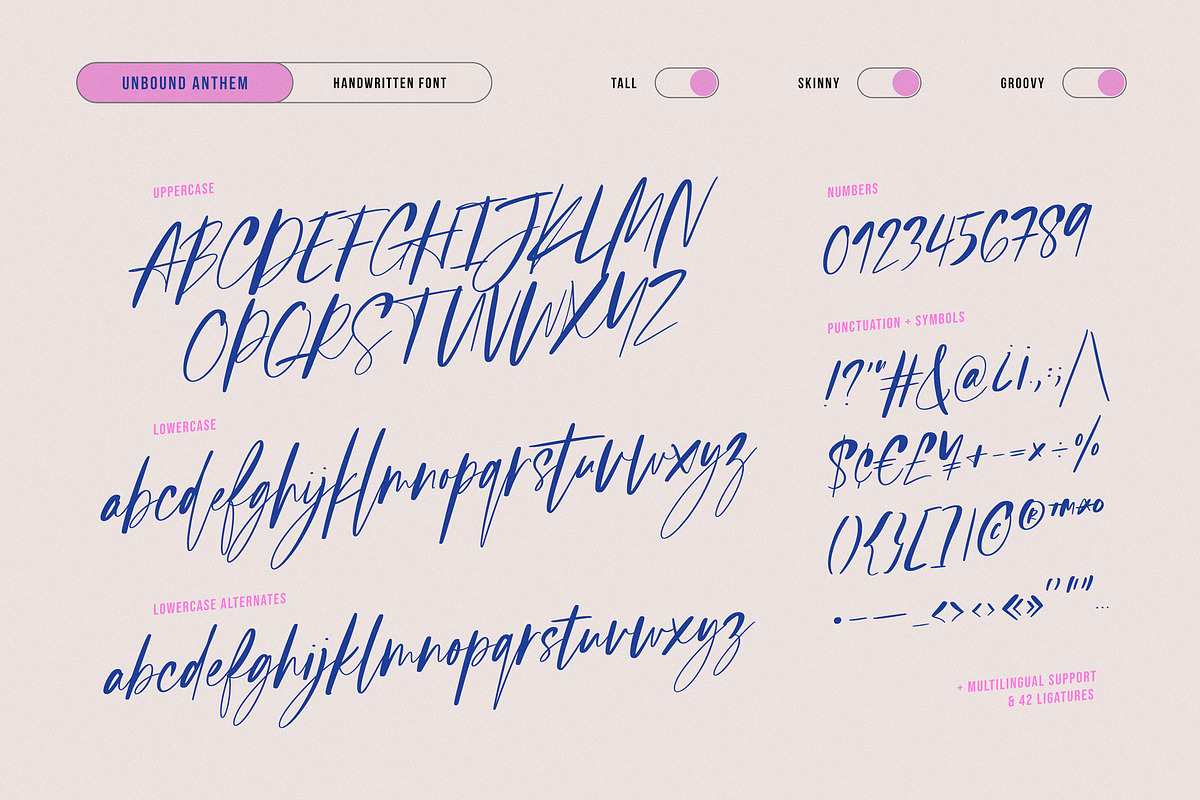 UNBOUND ANTHEM HANDWRITTEN FONT TALL SKINNY GROOVY
UPPERCASE
ABCDEFGHIJKLMN
OPQRSTUVWXYZ
LOWERCASE
abcdefghijklmnopqrstuvwxyz
LOWERCASE ALTERNATES
abcdefghijklmnopqrstuvwxyz
NUMBERS
0123456789
PUNCTUATION + SYMBOLS
!?'"#&@¿¡.,:;/\
$¢€£¥+-=×÷%
(){}[]|©®™¤°
•–—_<>‹›«»‘’“”…
+ MULTILINGUAL SUPPORT
& 42 LIGATURES